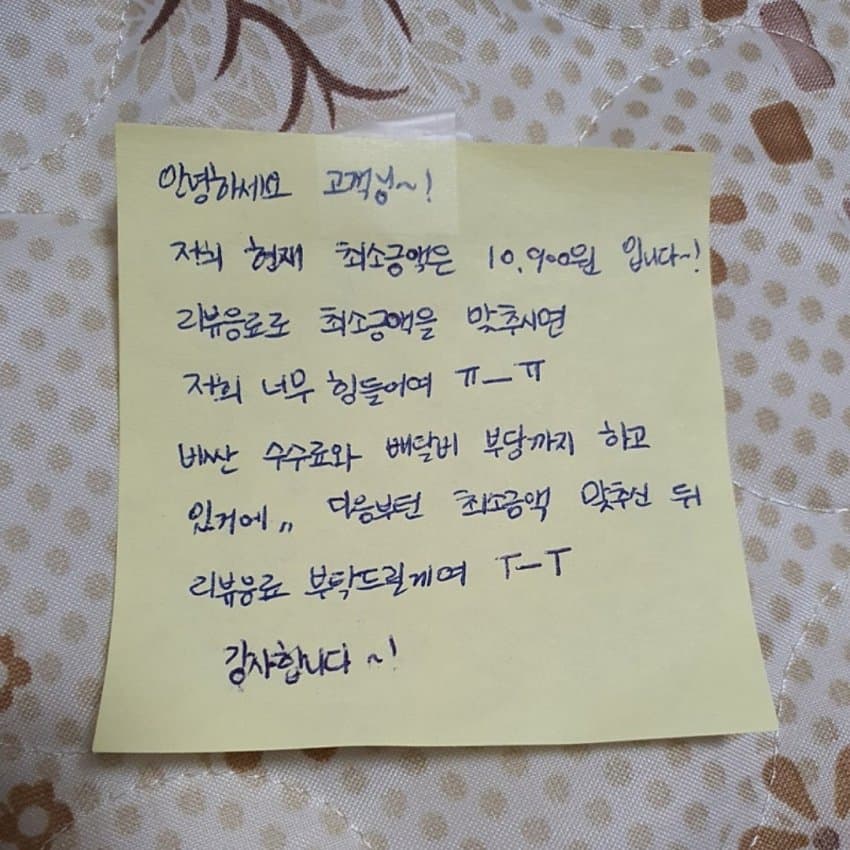 안녕하세요 고객님~!
저희 현재 최소금액은 10,900원 입니다~!
리뷰음료로 최소금액을 맞추시면
저희 너무 힘들어여 ㅠ_ㅠ
비싼 수수료와 배달비 부담까지 하고
있거에,, 다음부턴 최소금액 맞추신 뒤
리뷰음료 부탁드릴게여 T_T
감사합니다~!